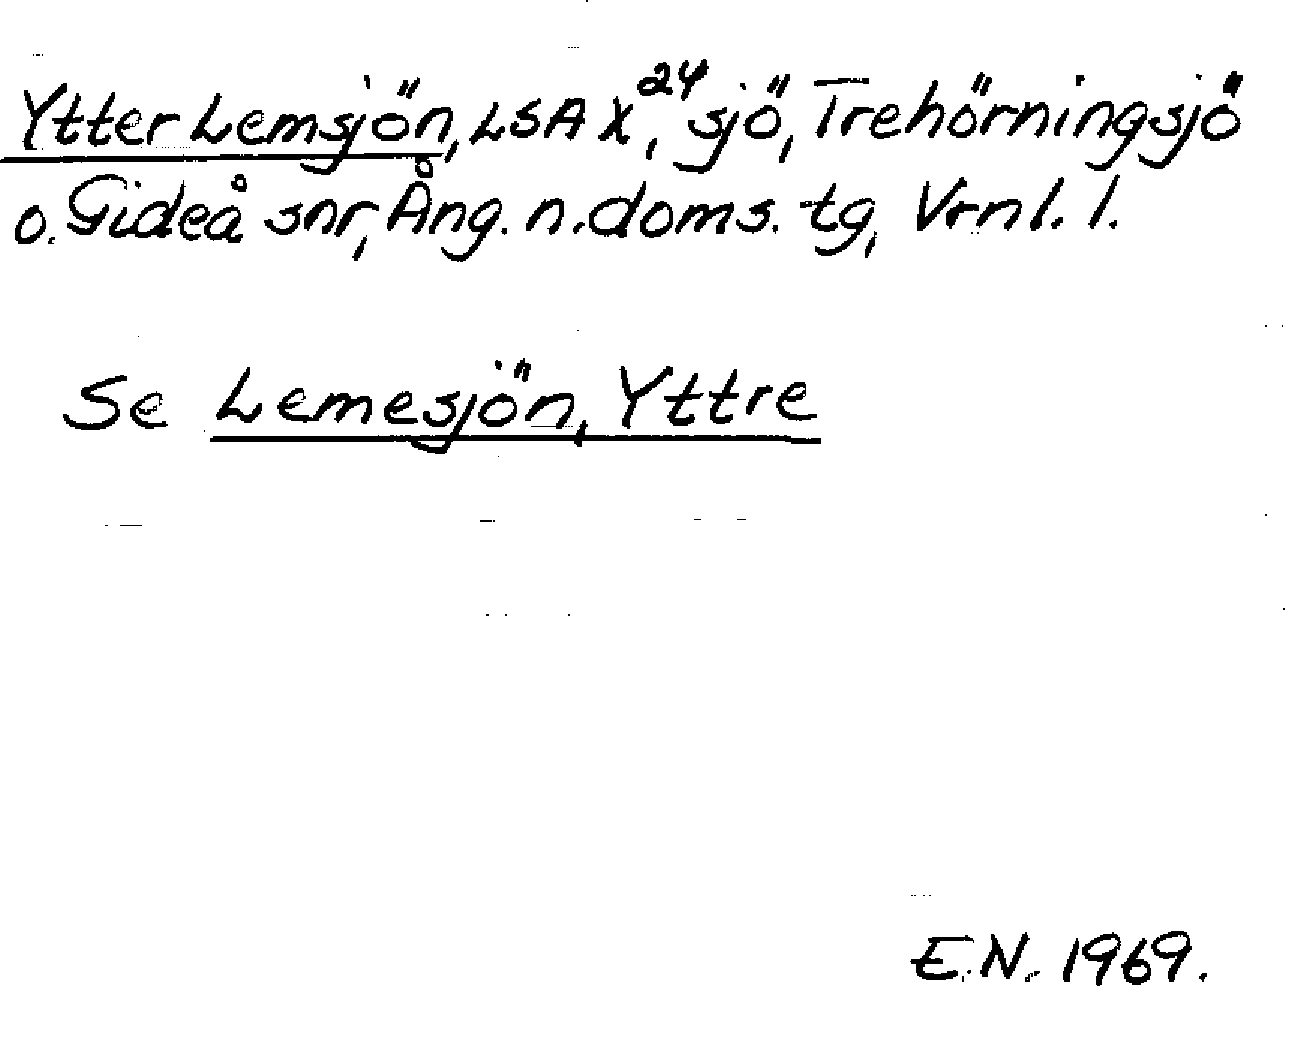 Ytter Lemsjön, LSA X, 24 sjö, Trehörningsjö
o. Gideå snr, Ång. n. doms. tg, Vrnl. l.
Se Lemesjön, Yttre
E.N. 1969.